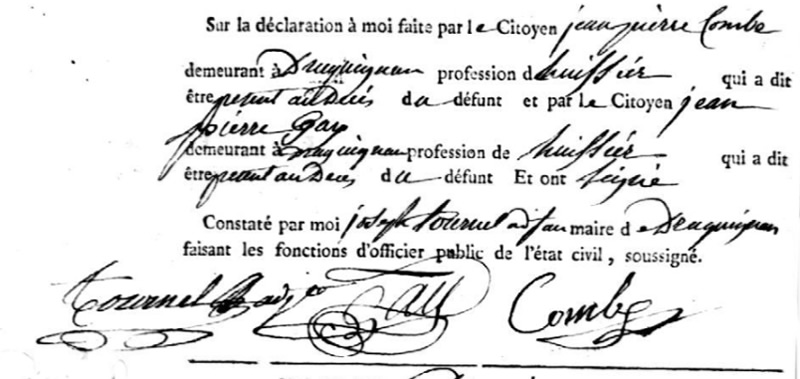 Sur la déclaration à moi faite par le Citoyen jean pierre Combe
demeurant à Draguignan profession d'huissier qui a dit
être présent au Décés du défunt et par le Citoyen jean
pierre Gay
demeurant à draguignan profession de huissier qui a dit
être présent au Decés du défunt Et ont signé
Constaté par moi joseph tournel maire de Draguignan
faisant les fonctions d'officier public de l'état civil, soussigné.
Tournel Gay Combe